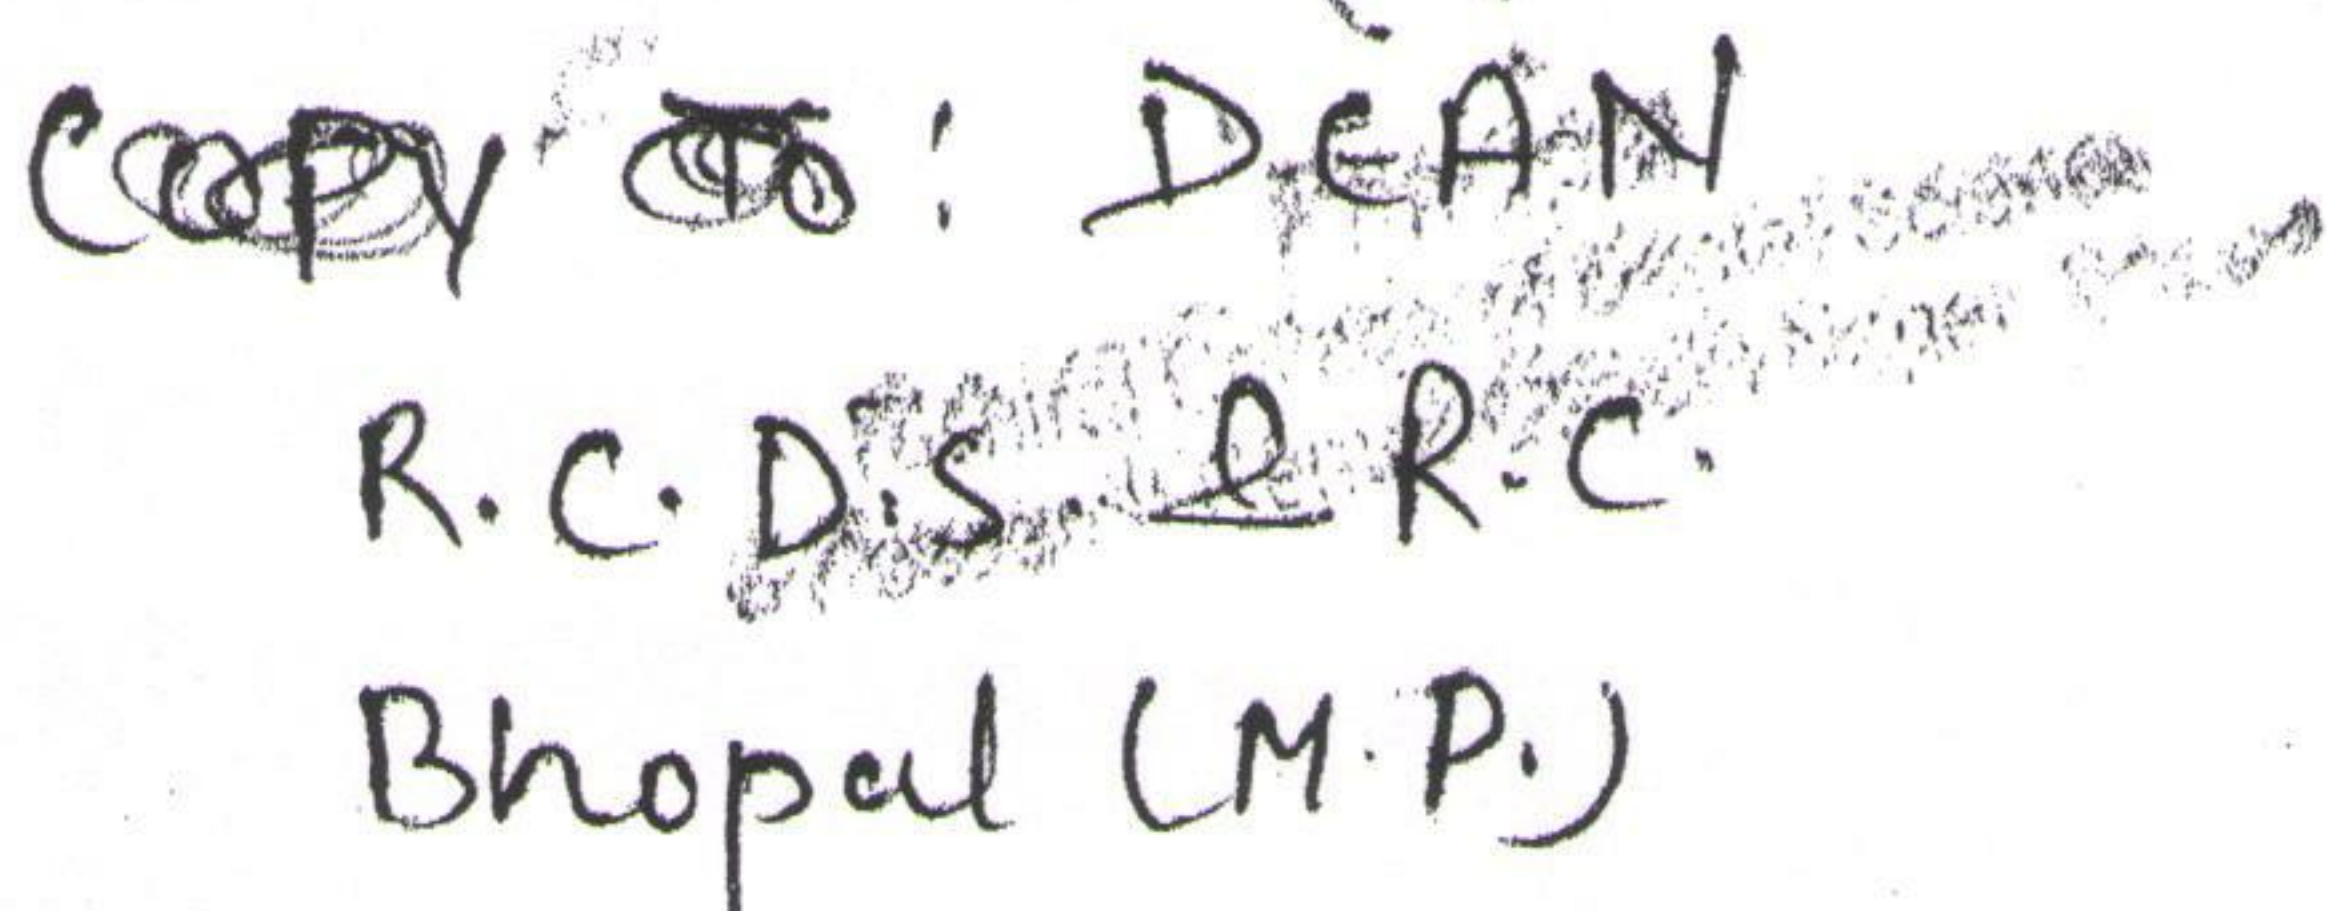 COPY TO: DEAN
R.C.D.S. & R.C.
Bhopal (M.P.)